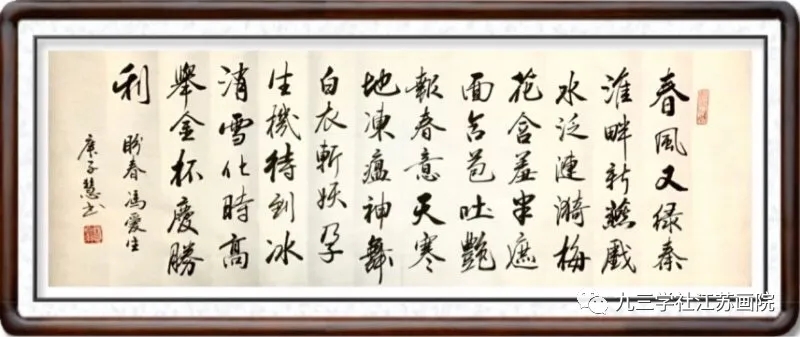 春風又綠秦
淮畔新燕戲
水泛漣漪梅
花含羞半遮
面含苞吐艷
報春意天寒
地凍瘟神舞
白衣斬妖孕
生機待到冰
消雪化時高
舉金杯慶勝
利
盼春馮愛生
庚子慧书
九三学社江苏画院